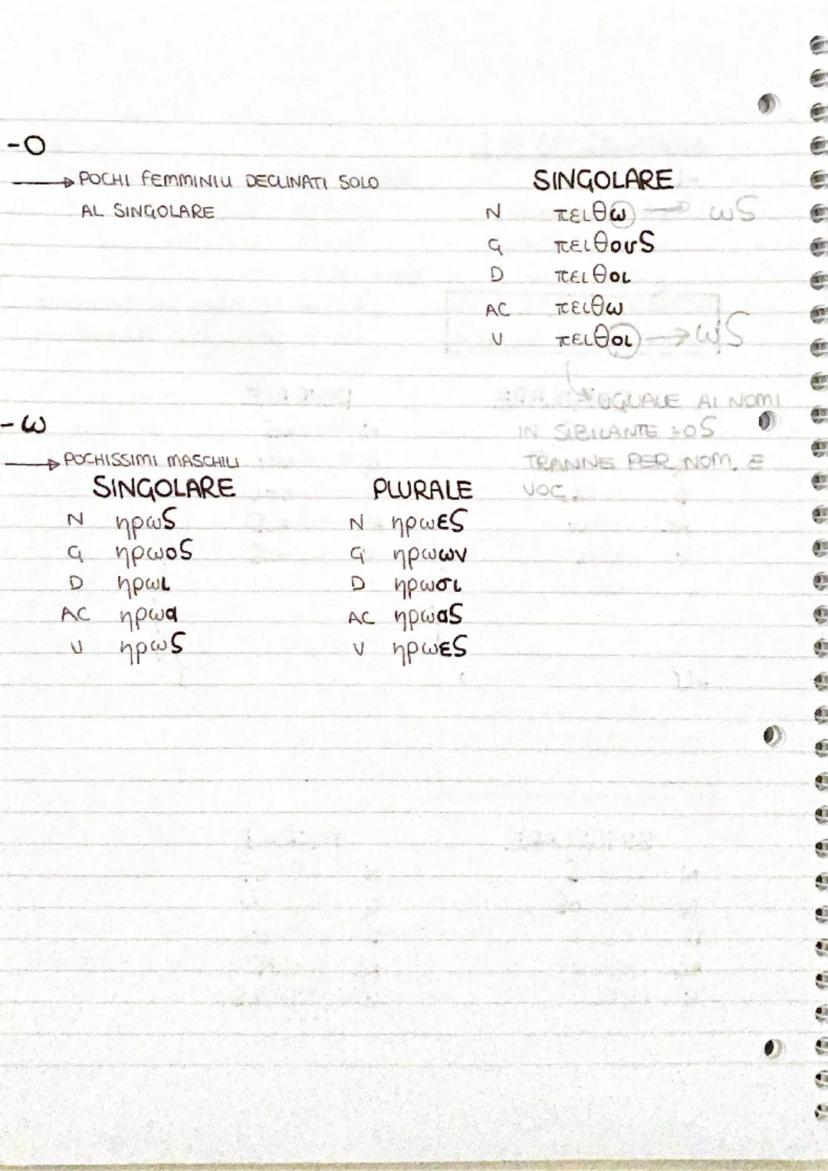 -O
→ POCHI FEMMINILI DECLINATI SOLO
AL SINGOLARE
SINGOLARE
N πειθω → ωS
G πειθουS
D πειθοι
AC πειθω
V πειθοι → ωS
UGUALE AI NOMI
IN SIBILANTE -OS
TRANNE PER NOM. E
VOC.
-ω
→ POCHISSIMI MASCHILI
SINGOLARE
N ηρωS
G ηρωοS
D ηρωι
AC ηρωα
V ηρωS
PLURALE
N ηρωεS
G ηρωων
D ηρωσι
AC ηρωαS
V ηρωεS